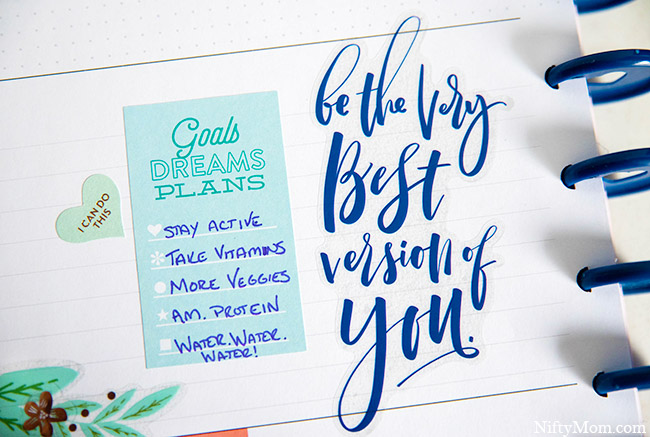 I CAN DO
THIS
Goals
DREAMS
PLANS
STAY ACTIVE
TAKE VITAMINS
MORE VEGGIES
AM. PROTEIN
WATER. WATER.
WATER!
be the very
Best
version of
you.
NiftyMom.com